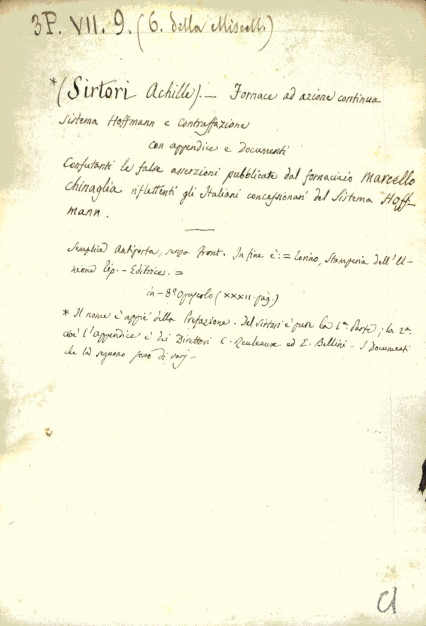 3P. VII. 9. (6. della Miscell.)
* (Sirtori Achille). — Fornace ad azione continua
sistema Hoffmann e contraffazione
con appendice e Documenti
Confutanti le false asserzioni pubblicate dal fornaciaio Marcello
Chinaglia riflettenti gli Italiani concessionari del Sistema Hoff-
mann.
Semplice Antiporta, senza front. In fine è: = Torino, Stamperia dell'U-
nione Tip. - Editrice. =
in-8° Opuscolo (XXXII pag.)
* Il nome è appiè della Prefazione. Del Sirtori è pure la 1ª Parte; la 2ª
cioè l'appendice è dei Direttori C. ed E. Bellini - I Documenti
che la seguono sono di varj -
Cl